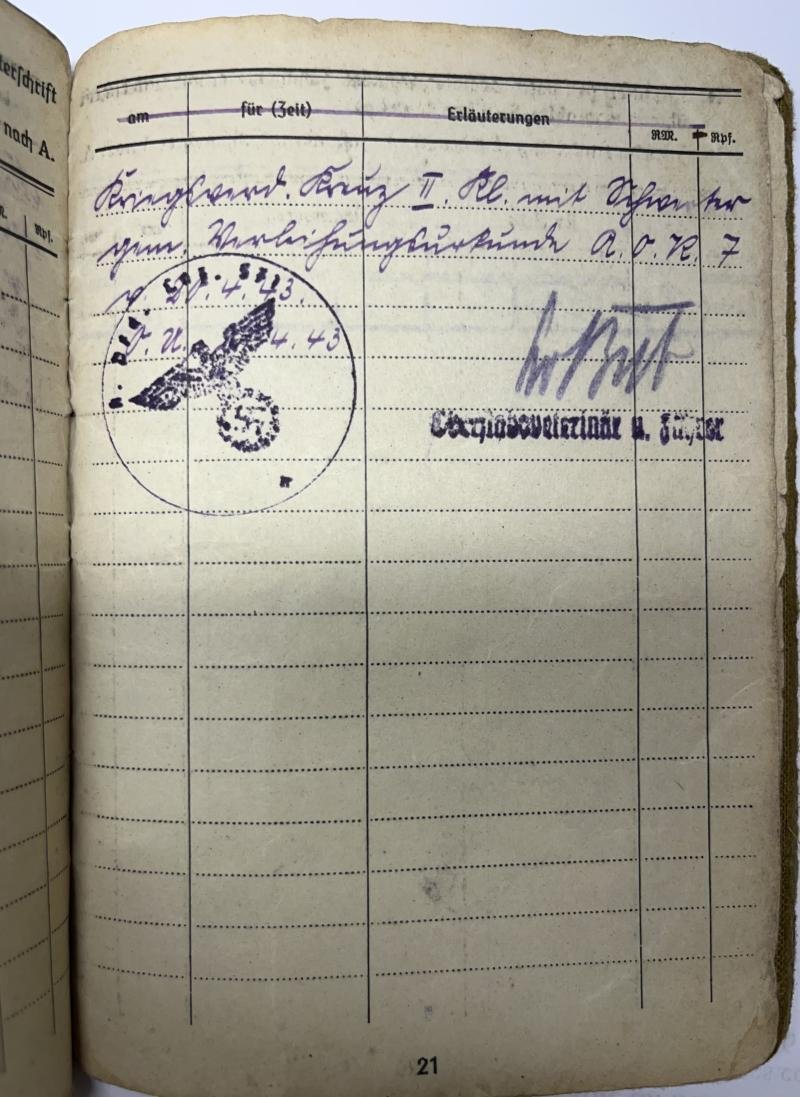 terschrift
nach A.
Rpf.
am für (Zeit) Erläuterungen RM. Rpf.
Kriegsverd. Kreuz II. Kl. mit Schwerter
gem. Verleihungsurkunde A.O.K. 7
v. 20.4.43.
O.U. 4.43
Oberstabsveterinär u. Führer
21